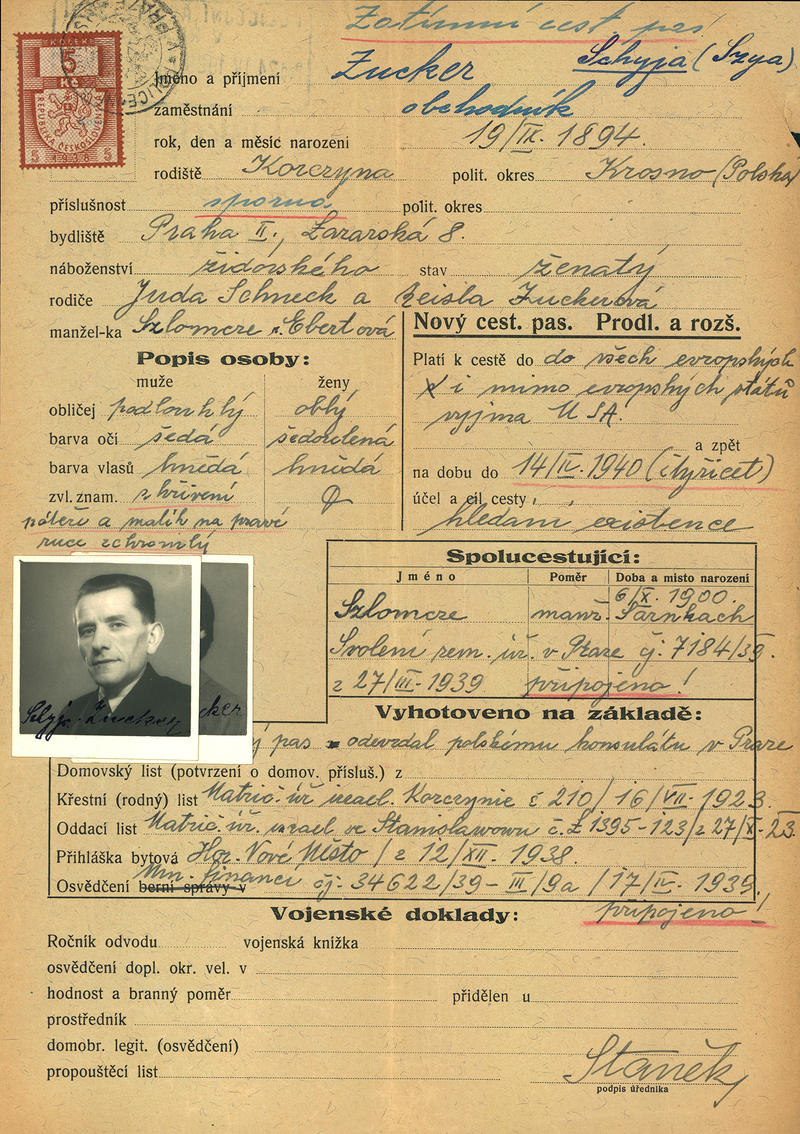 Zatimní cest. pas
KOLEK
5
Kč
REPUBLIKA ČESKOSLOVENSKÁ
5 1938 5
POLICE
Jméno a příjmení Zucker Schyja (Szya)
zaměstnání obchodník
rok, den a měsíc narození 19/IX. 1894.
rodiště Korczyna polit. okres Krosno (Polska)
příslušnost sporná polit. okres
bydliště Praha II., Lazarská 8.
náboženství židovského stav ženatý
rodiče Juda Schneck a Reisla Zuckerová
manžel-ka Szlomcze r. Ebertová
Nový cest. pas. Prodl. a rozš.
Popis osoby:
muže ženy
obličej podlouhlý oblý
barva očí šedá šedozelená
barva vlasů hnědá hnědá
zvl. znam. zkřivení
páteři a malík na pravé
ruce zchromlý
Platí k cestě do do všech evropských
i mimo evropských států
vyjma USA.
a zpět
na dobu do 14/IV. 1940 (čtyřicet)
účel a cíl cesty
hledání existence
Spolucestující:
Jméno Poměr Doba a místo narození
6/X. 1900.
Szlomcze manž. Sarnkach
Svolení zem. úř. v Praze čj. 7184/39.
z 27/III-1939 připojeno!
Schyja Zucker
cker
Vyhotoveno na základě:
pas odevzdal polskému konsulátu v Praze
Domovský list (potvrzení o domov. přísluš.) z
Křestní (rodný) list Matrič. úř. israel. Korczynie č 210/16/VII.-1923.
Oddací list Matrič. úř. israel ve Stanislawowu č. L 1395-123/z 27/X-23.
Přihláška bytová Hor. Nové Město / z 12/XII. 1938.
Osvědčení berní správy v Min. financí čj. 34622/39-III/9a /17/IV.-1939.
připojeno!
Vojenské doklady:
Ročník odvodu vojenská knížka
osvědčení dopl. okr. vel. v
hodnost a branný poměr přidělen u
prostředník
domobr. legit. (osvědčení)
propouštěcí list
Staněk
podpis úředníka